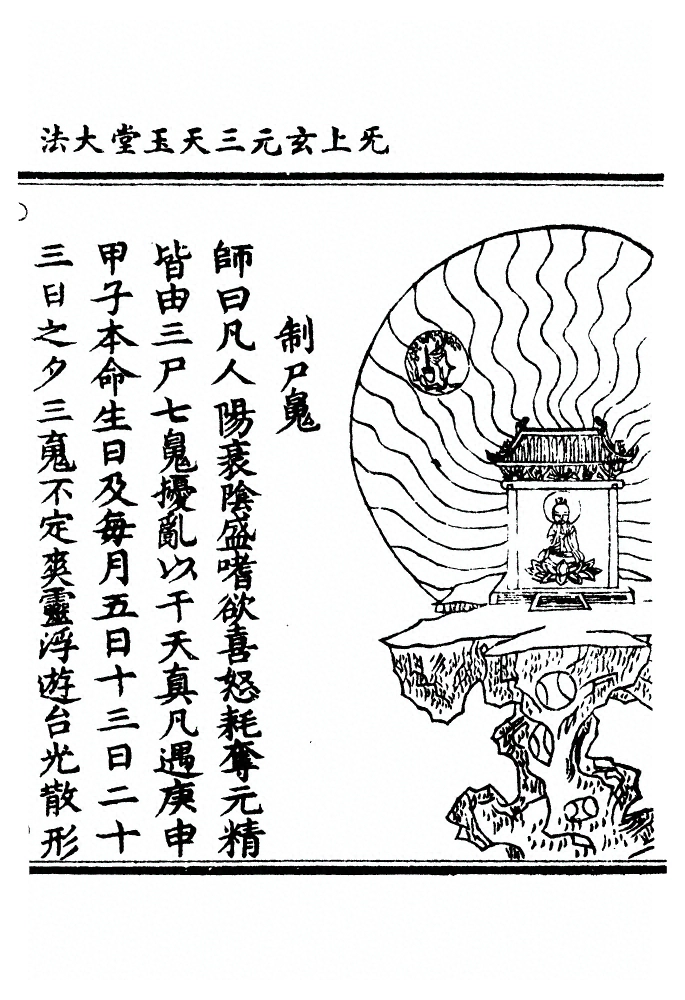 无上玄元三天玉堂大法
制尸鬼
師曰凡人陽衰陰盛嗜欲喜怒耗奪元精
皆由三尸七鬼擾亂以干天真凡遇庚申
甲子本命生日及每月五日十三日二十
三日之夕三魂不定爽靈浮遊台光散形